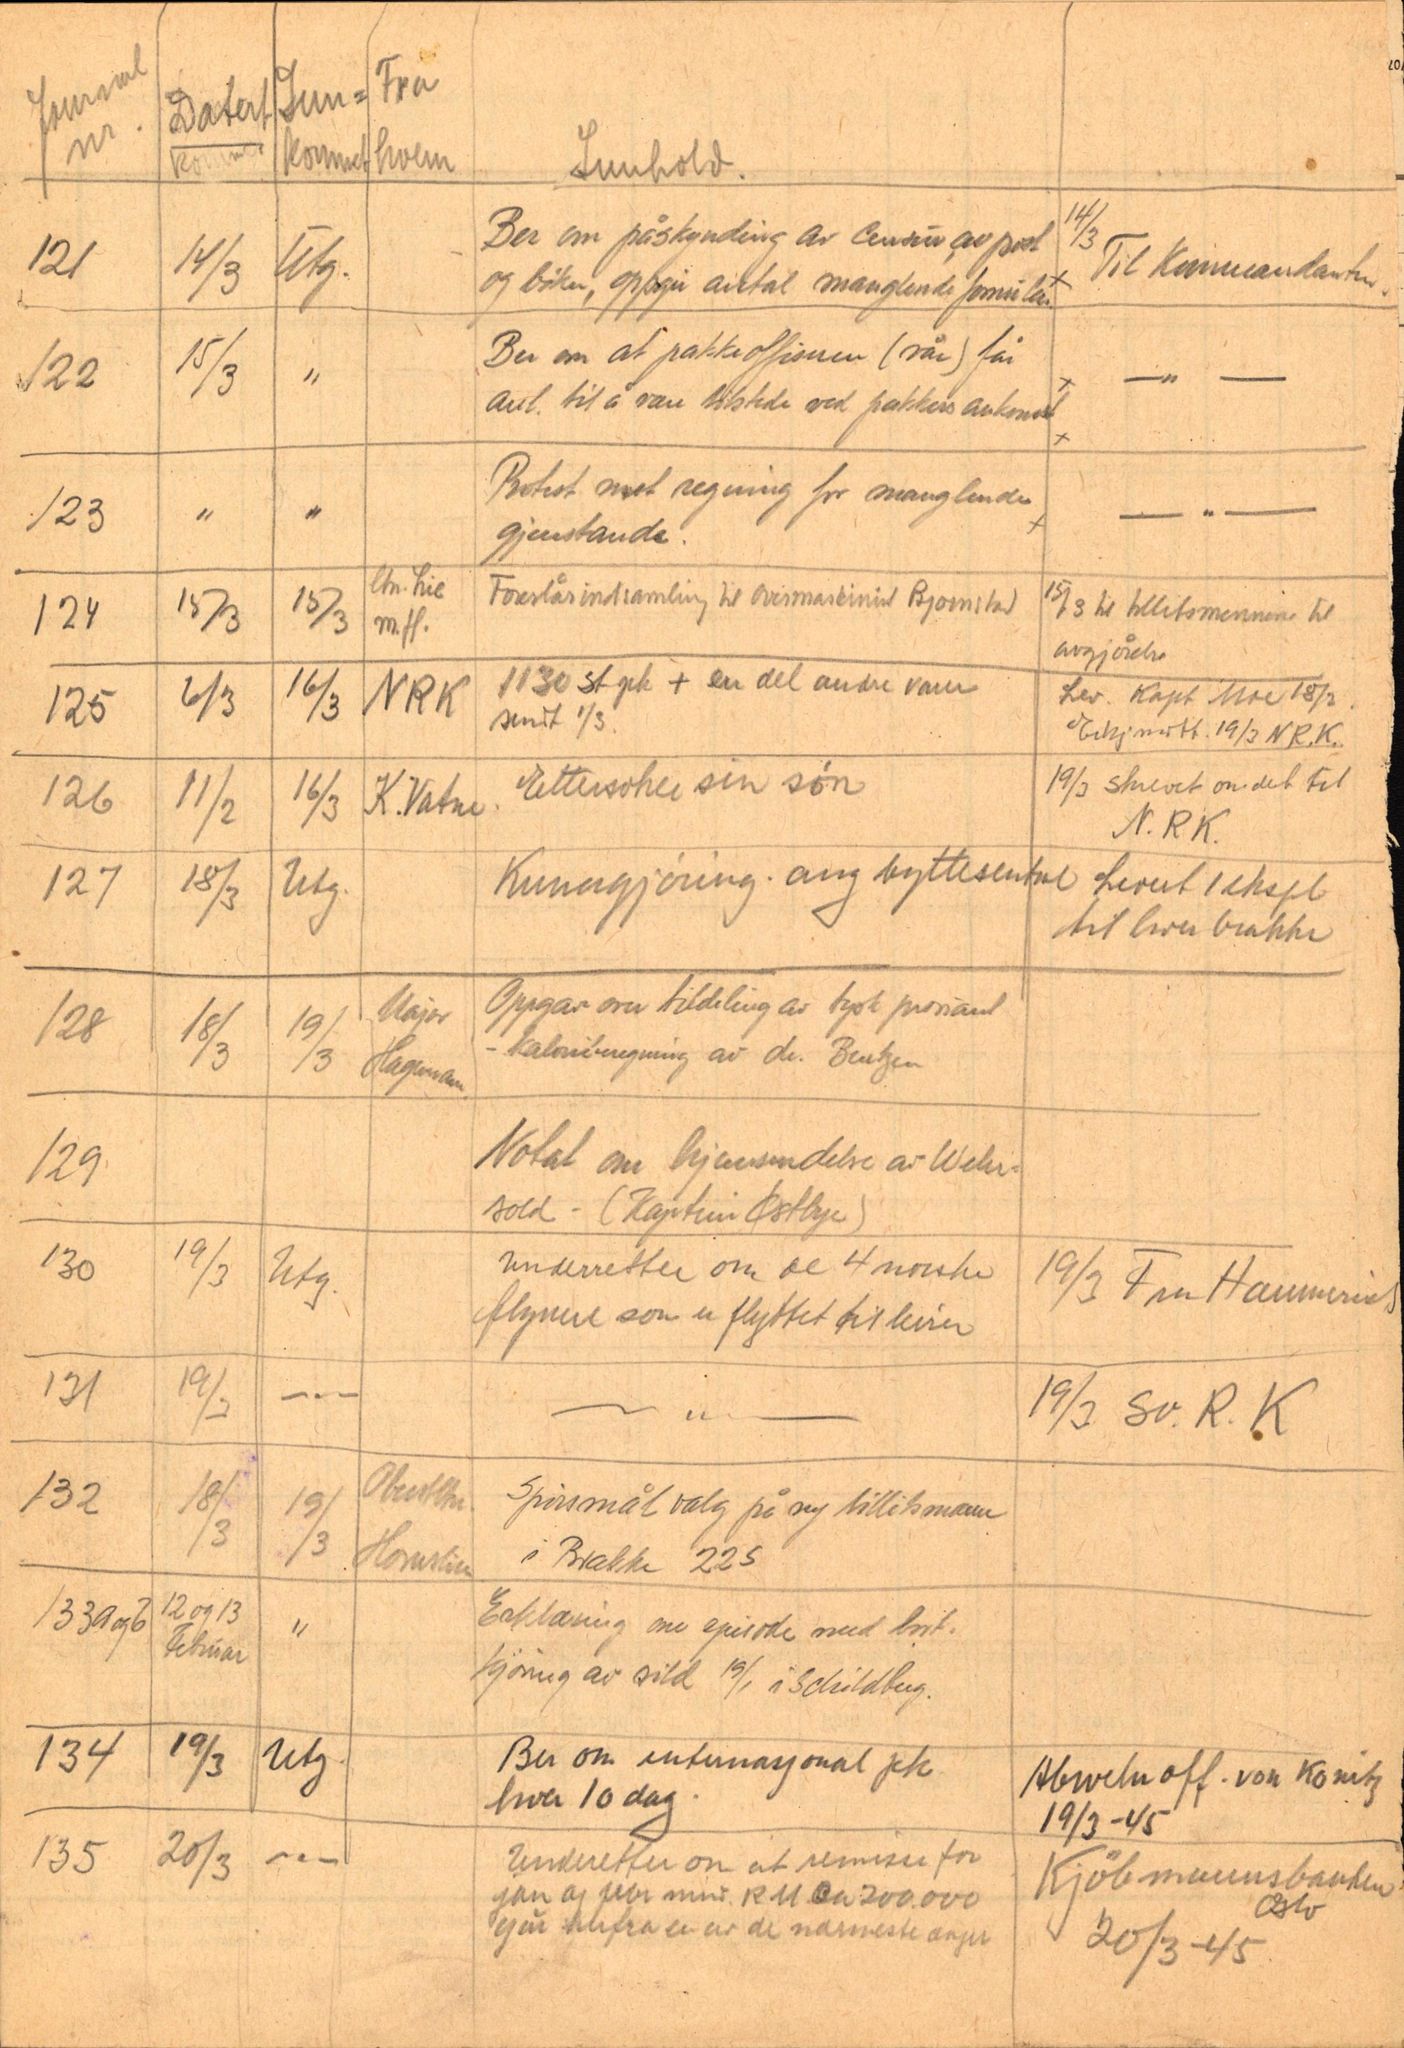 Journal nr. Datert Inn= Fra
kommet hvem Innhold.
121 14/3 Utg. Ber om påskynding av censur av post 14/3 Til Kommandanten.
og böker, oppgir antal manglende formular. +
122 15/3 " Ber om at pakkeoffiseren (vår) får + —"—
anl. til å være tilstede ved pakkers ankomst +
123 " " Protest mot regning for manglende + —"—
gjenstande.
124 15/3 15/3 ltn. Lie Foreslår indsamling til overmaskinist Bjornstad 15/3 til tillitsmennene til
m.fl. avgjørelse
125 6/3 16/3 NRK 1130 st pk + en del andre varer Lev. Kapt Moe 18/3.
sendt 1/3. 19/3 N.R.K.
126 11/2 16/3 K. Vatne. Ettersøker sin søn 19/3 skrevet om det til
N.R.K.
127 18/3 Utg. Kunngjøring. ang byttesentral Levert 1 ekspl
til hver brakke
128 18/3 19/3 Major Oppgave over tildeling av tysk proviant
Hagemann. - kaloriberegning av dr. Bentzen
129 Notat om hjemsendelse av Wehr-
sold - (Kaptein Østbye)
130 19/3 Utg. Underretter om de 4 norske 19/3 Fru Hammerich
flyvere som er flyttet til leiren
131 19/3 —"— —"— 19/3 Sv. R. K
132 18/3 19/3 Oberstltn. Spørsmål valg på ny tillitsmann
Hornslien i Brakke 225
133 a og b 12 og 13 " Erklæring om episode med bort-
Februar kjøring av sild 19/1 i Schildberg.
134 19/3 Utg. Ber om internasjonal pk Abwehr off. von Konitz
hver 10 dag. 19/3-45
135 20/3 —"— Underetter om at remisse for Kjöbmannsbanken
jan og febr RM ca 200.000 Oslo
går herfra en av de nærmeste dager 20/3-45